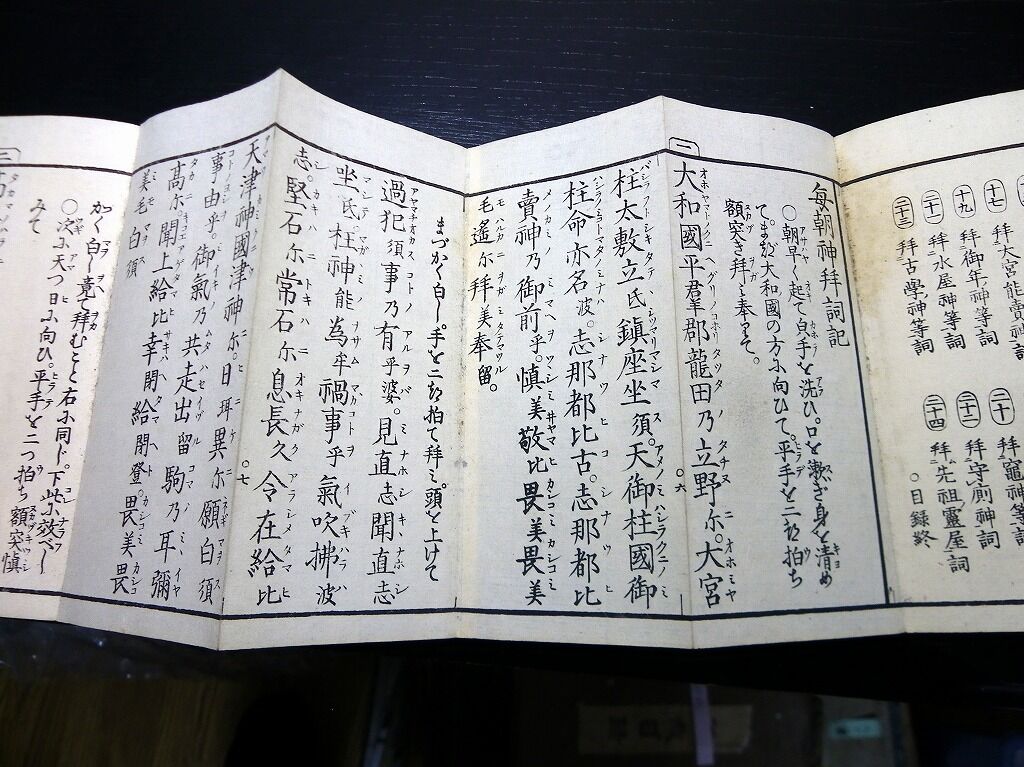 十七 拜大宮能賣神
十九 拜御年神等詞
二十一 拜水屋神等詞
二十三 拜古學神等詞
二十 拜竈神等詞
二十二 拜守厠神詞
二十四 拜先祖靈屋詞
○目録終
每朝神拜詞記
○朝早く起て白手を洗ひ。口を漱ぎ身を清め
て。まづ大和國の方に向ひて。平手を二部拍ち
額突き拜と奉りそ。
一
大和國平羣郡龍田乃立野尓。大宮
柱太敷立氏鎮座坐須。天御柱國御
柱命亦名波。志那都比古。志那都比
賣神乃御前乎。慎美敬比畏美畏美
毛遙尓拜美奉留。
○六
まづかく白し手を二部拍て拜ミ。頭を上けて
過犯須事乃有乎婆。見直志聞直志
坐氏。柱神能為牟禍事乎氣吹拂波
志。堅石尓常石尓息長久令在給比
○七
天津神國津神尓。日耳異尓願白須
事由乎。御氣乃共走出留駒乃耳彌
高尓。聞上給比幸閇給閇登。畏美畏
美毛白須
かく白し竟て拜むこと右に同ド。下此に效べし
○次に天つ日に向ひ。平手を二つ拍ち額突慎
みて
二